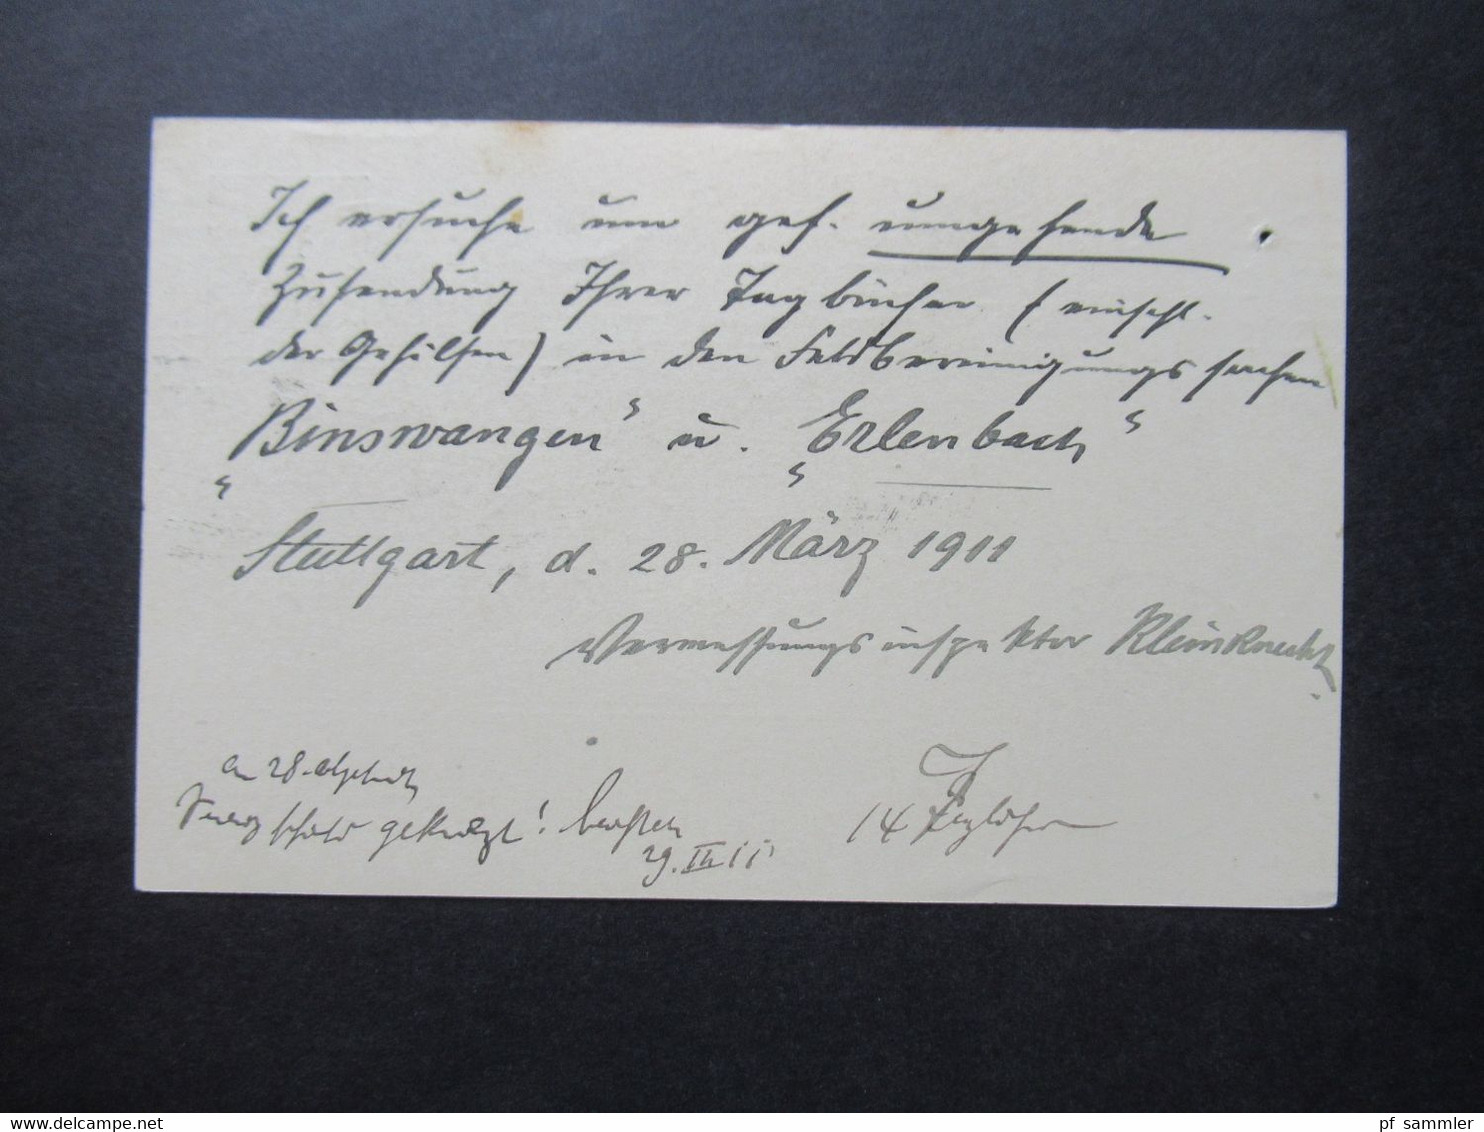 Ich ersuche um gef. umgehende
Zusendung Ihrer Tagbücher (einschl.
der Gehülfen) in den Feldbereinigungssachen
„Binswangen“ u. „Erlenbach“
Stuttgart, d. 28. März 1911
Vermessungsinspektor Kleinknecht
28.
29. III 11
14
www.delcampe.net
pf_sammler